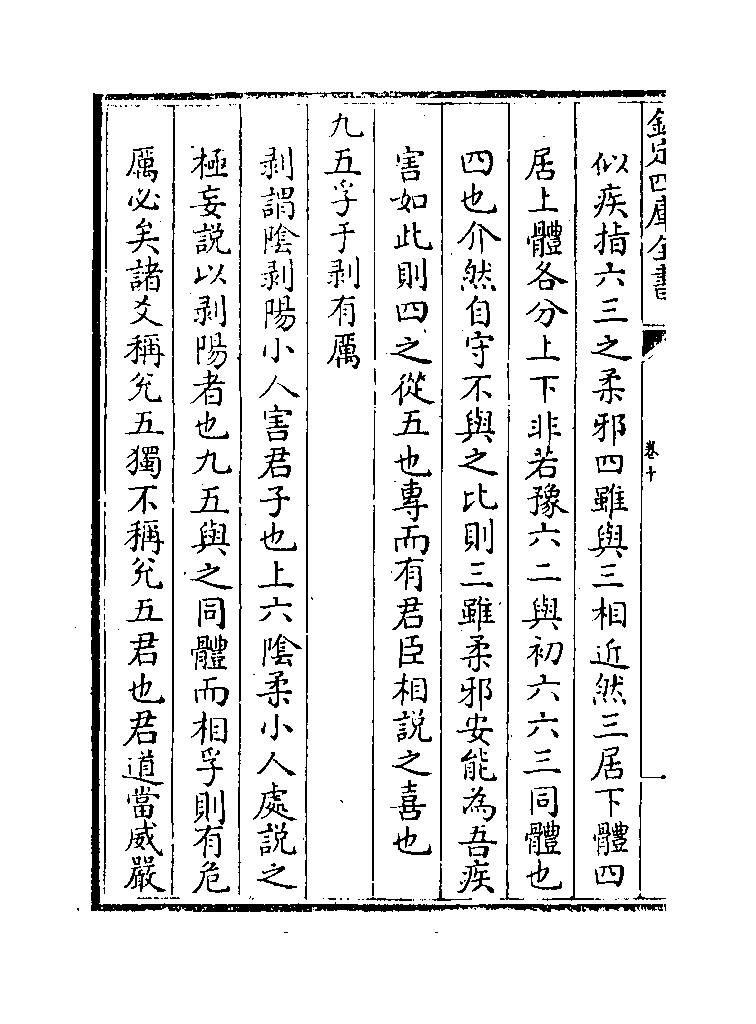 欽定四庫全書
卷十
似疾指六三之柔邪四雖與三相近然三居下體四
居上體各分上下非若豫六二與初六六三同體也
四也介然自守不與之比則三雖柔邪安能為吾疾
害如此則四之從五也專而有君臣相説之喜也
九五孚于剥有厲
剥謂陰剥陽小人害君子也上六陰柔小人處説之
極妄説以剥陽者也九五與之同體而相孚則有危
厲必矣諸爻稱兊五獨不稱兊五君也君道當威嚴